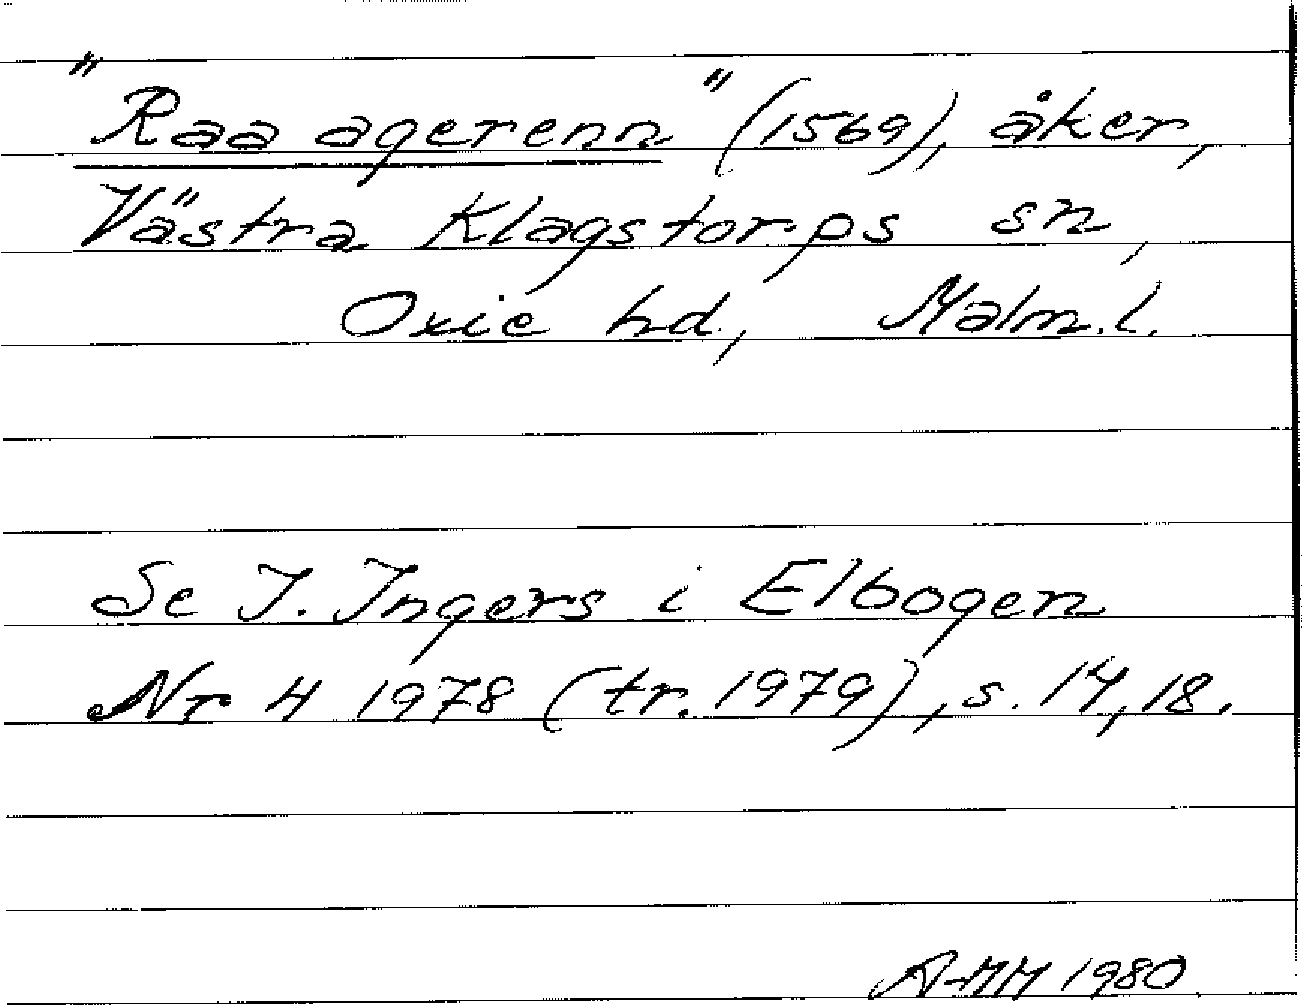 "Raa agerenn" (1569), åker,
Västra Klagstorps sn,
Oxie hd, Malm.l.
Se I. Ingers i Elbogen
Nr 4 1978 (tr. 1979), s. 14, 18.
AMM 1980